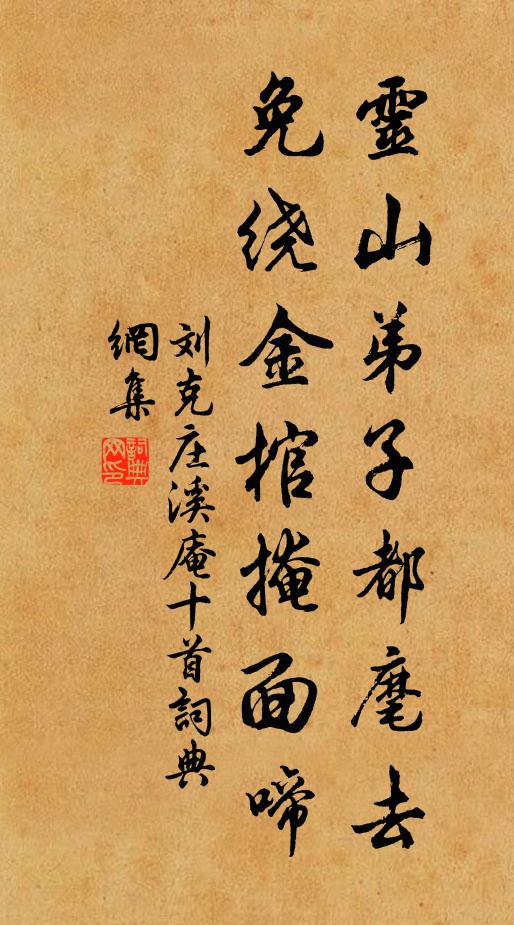 靈山弟子都麾去
免绕金棺掩面啼
刘克庄溪庵十首詞典
網集
詞典網印